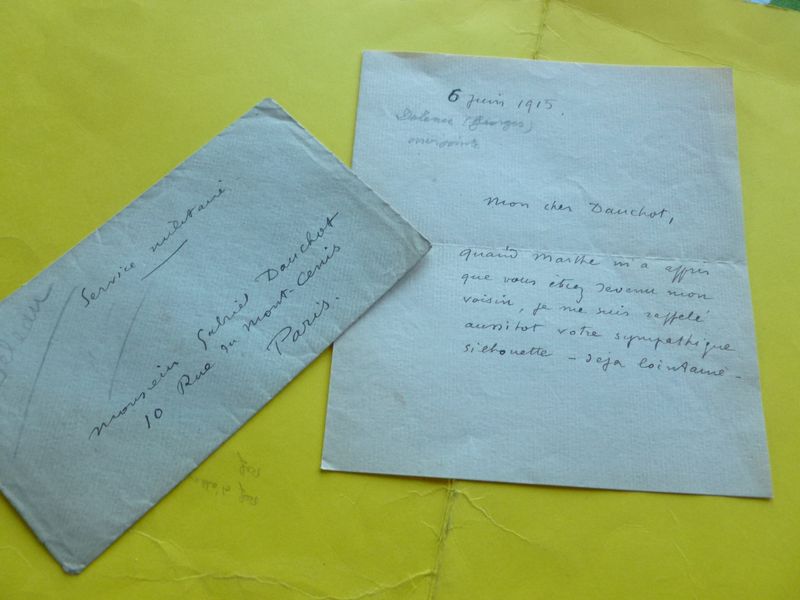 Service militaire
Monsieur Gabriel Dauchot
10 Rue du Mont-Cenis
Paris.
6 juin 1915.
(Georges)
Mon cher Dauchot,
quand Marthe m'a appris
que vous étiez devenu mon
voisin, je me suis rappelé
aussitot votre sympathique
silhouette - deja lointaine -